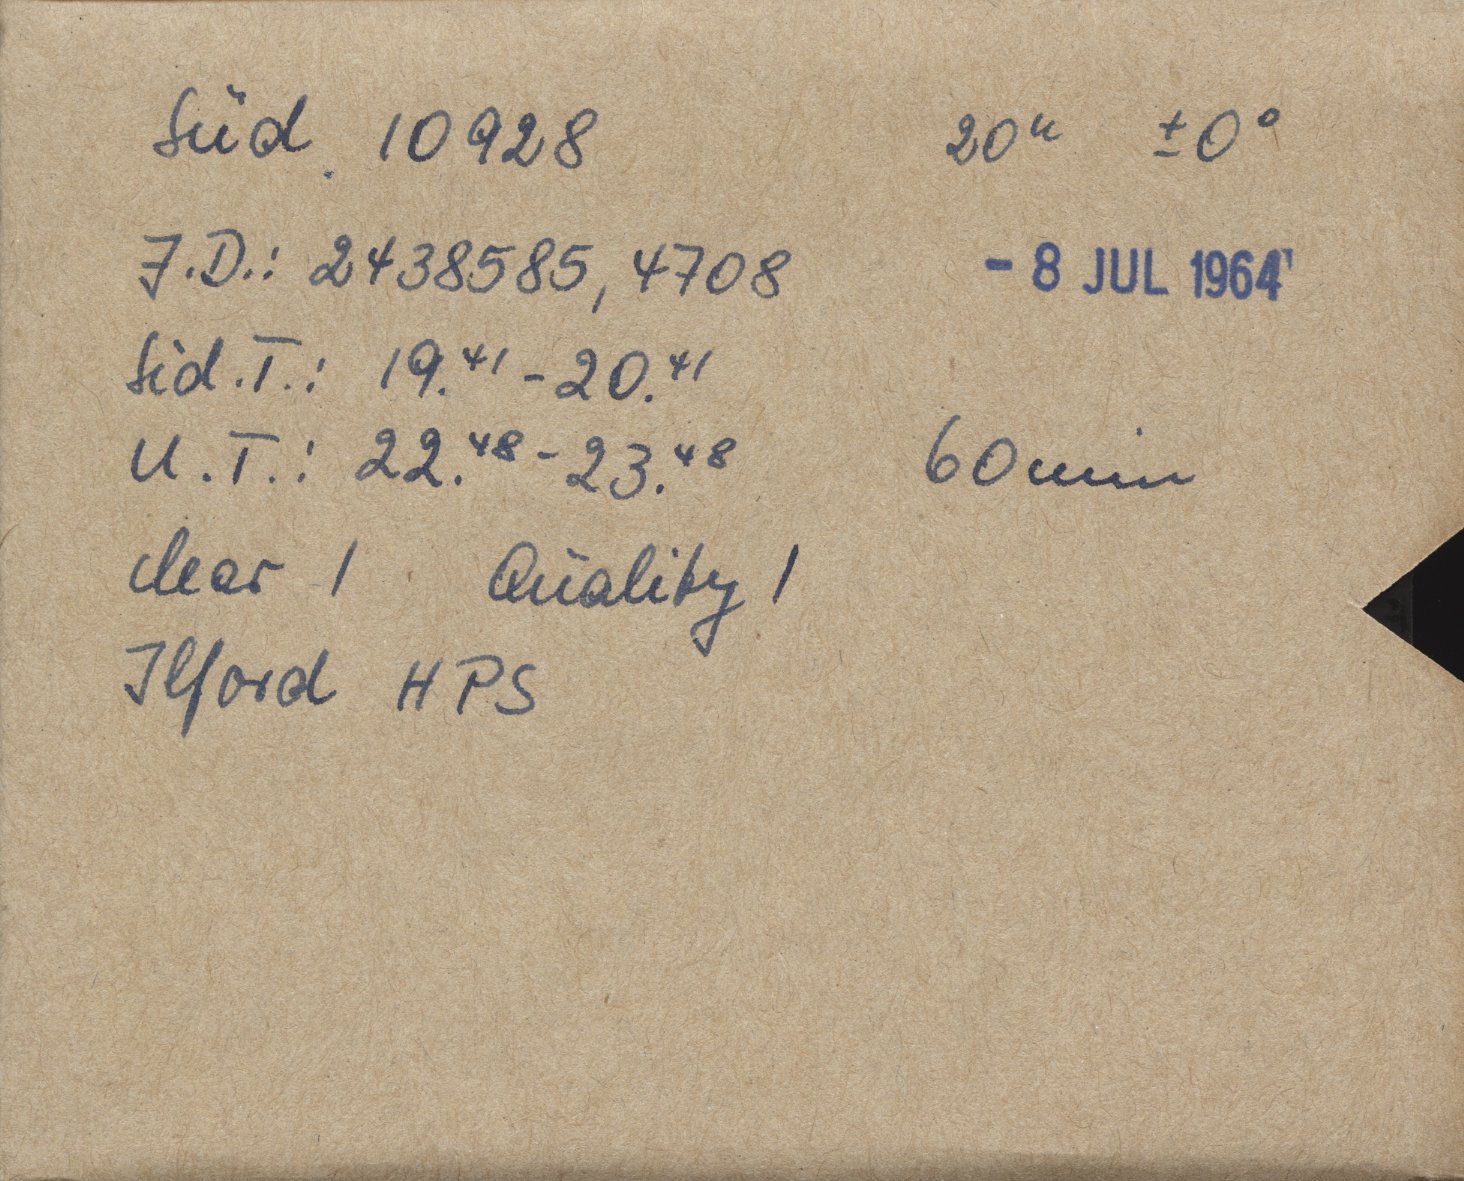 Süd. 10928 20ʰ ±0°
J.D.: 2438585,4708 - 8 JUL 1964
Sid.T.: 19.⁴¹ - 20.⁴¹
U.T.: 22.⁴⁸ - 23.⁴⁸ 60 min
clear 1 Quality 1
Ilford HPS